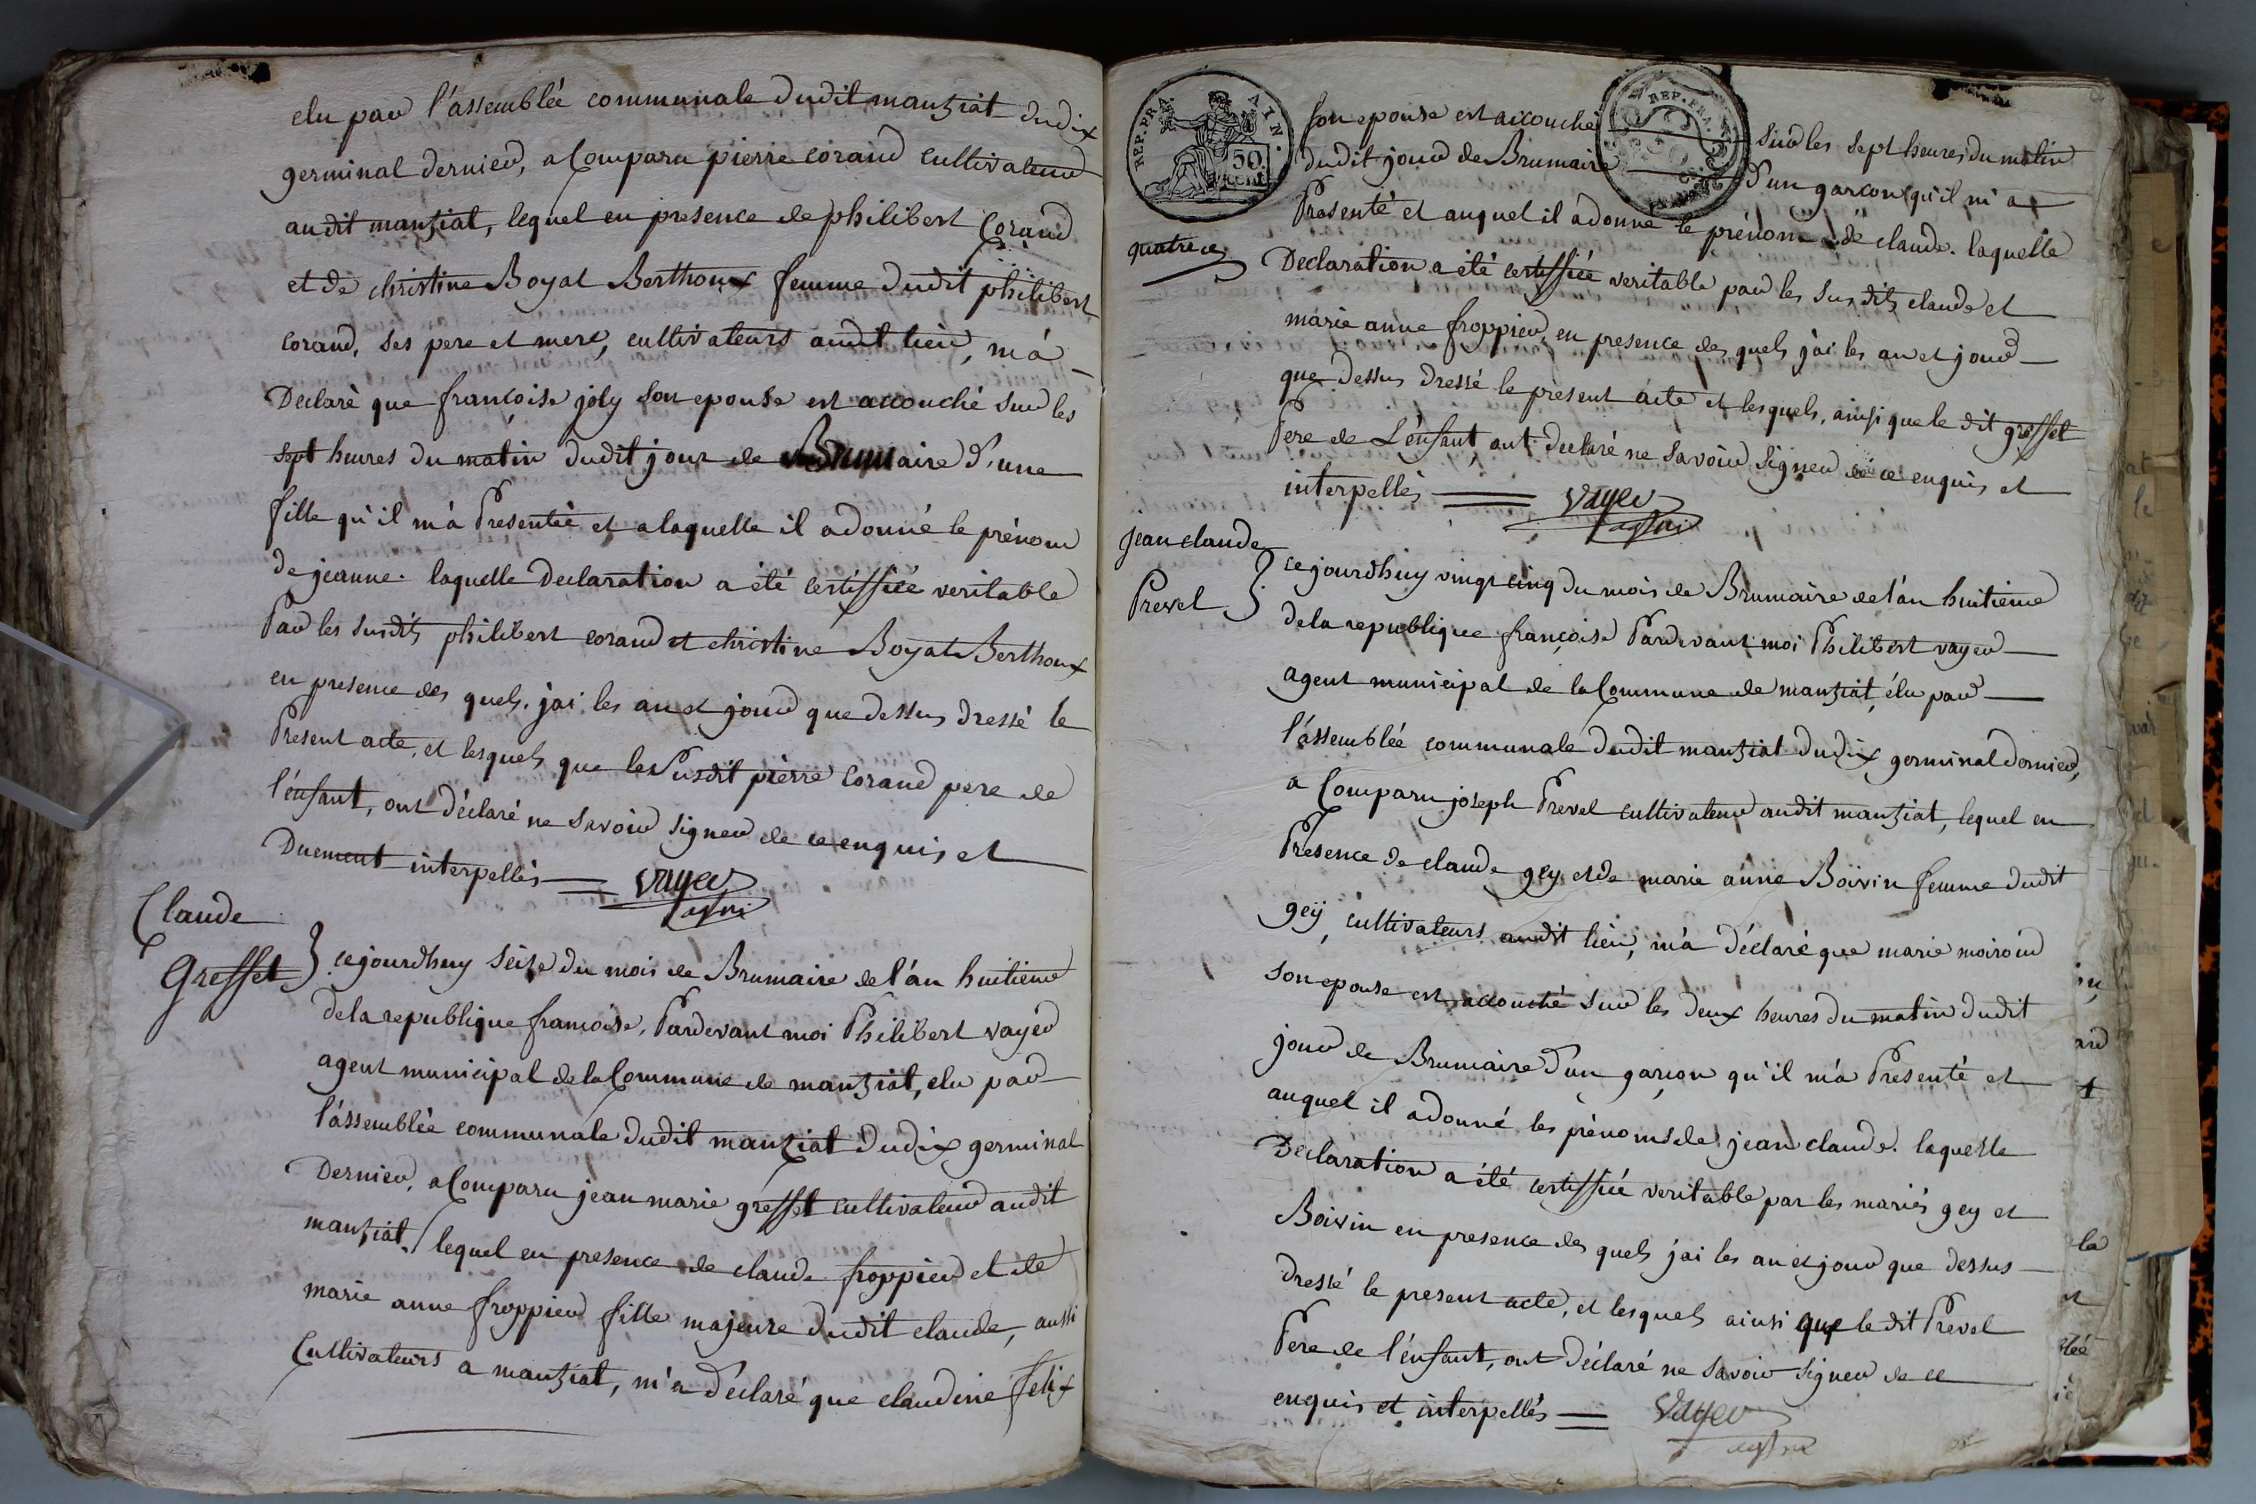 elu par l'assemblée communale dudit manziat du dix
germinal dernier, a Comparu pierre corand cultivateur
audit manziat, lequel en presence de philibert Corand
et de christine Boyat Berthoux femme dudit philibert
corand, ses pere et mere, cultivateurs audit lieu, m'a
Declaré que françoise joly son epouse est accouché sur les
sept heures du matin dudit jour de Brumaire d'une
fille qu'il m'a Presentée et a laquelle il a donné le prénom
de jeanne. laquelle Declaration a été certiffiée veritable
Par les susdits philibert corand et christine Boyat Berthoux
en presence des quels, j'ai les an et jour que dessus dressé le
Present acte, et lesquels que le Susdit pierre Corand pere de
l'enfant, ont déclaré ne savoir signer de ce enquis et
Duement interpellés vayer
agt mi
Claude
Greffet
cejourdhuy seise du mois de Brumaire de l'an huitieme
de la republique françoise, Pardevant moi Philibert vayer
agent municipal de la Commune de manziat, elu par
l'assemblée communale dudit manziat du dix germinal
Dernier, a Comparu jean marie greffet cultivateur audit
manziat, lequel en presence de claude froppier et de
marie anne froppier fille majeure dudit claude, aussi
Cultivateurs a manziat, m'a déclaré que claudine felix
REP. FRA. AIN.
50.
CENT.
REP. FRA.
son epouse est accouché sur les sept heures du matin
dudit jour de Brumaire d'un garcon qu'il m'a
Presenté et auquel il a donné le prénom de claude. laquelle
Declaration a été certiffiée veritable par les susdits claude et
marie anne froppier, en presence des quels j'ai les an et jour
que dessus dressé le present acte et lesquels, ainsi que le dit greffet
Pere de L'enfant, ont declaré ne savoir signer de ce enquis et
interpellés vayer
agt mi
jean claude
Prevel
cejourdhuy vingt cinq du mois de Brumaire de l'an huitieme
de la republique françoise Pardevant moi Philibert vayer
agent municipal de la Commune de manziat, élu par
l'assemblée communale dudit manziat du dix germinal dernier,
a Comparu joseph Prevel cultivateur audit manziat, lequel en
Presence de claude gey et de marie anne Boivin femme dudit
geÿ, cultivateurs audit lieu, m'a déclaré que marie moiroud
son epouse est accouché sur les deux heures du matin dudit
jour de Brumaire d'un garçon qu'il m'a Presenté et
auquel il a donné les prénoms de jean claude. laquelle
Declaration a été certiffiée veritable par les mariés gey et
Boivin en presence des quels j'ai les an et jour que dessus
dressé le present acte, et lesquels ainsi que le dit Prevel
Pere de l'enfant, ont déclaré ne savoir signer de ce
enquis et interpellés vayer
agt mi